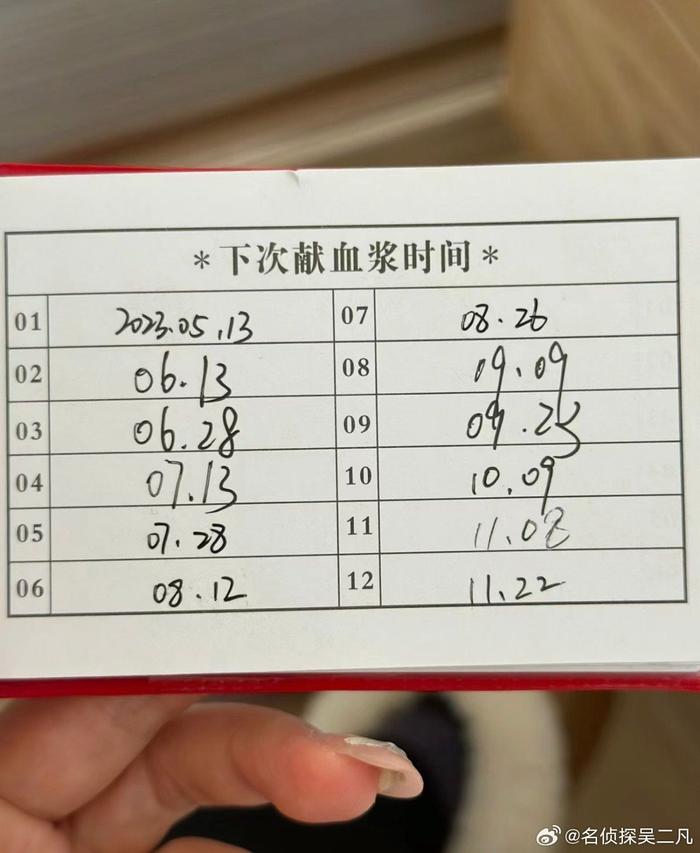 *下次献血浆时间*
01 2023.05.13 07 08.26
02 06.13 08 09.09
03 06.28 09 09.25
04 07.13 10 10.09
05 07.28 11 11.08
06 08.12 12 11.22
@名侦探吴二凡